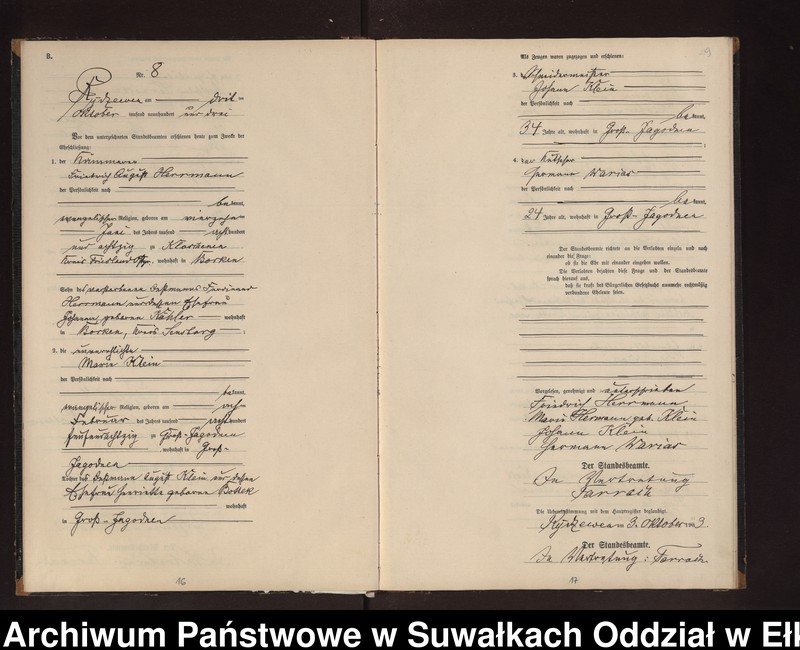 8.
Nr. 8
Rydzewen am drit-
Oktober tausend neunhundert und drei
Vor dem unterzeichneten Standesbeamten erschienen heute zum Zwecke der
Eheschließung:
1. der Kämmerer
Friedrich August Herrmann
der Persönlichkeit nach
be kannt,
evangelischer Religion, geboren am vierzehn-
Juni des Jahres tausend acht hundert
und achtzig zu
Kreis Friedland Opr., wohnhaft in Borken
Sohn des verstorbenen Instmanns Ferdinand
Herrmann und dessen Ehefrau
Johanna, geborenen Kähler wohnhaft
in Borken, Kreis Sensburg ;
2. die unverehelichte
Marie Klein
der Persönlichkeit nach
be kannt,
evangelischer Religion, geboren am
Februar des Jahres tausend acht hundert
fünfundachtzig zu Groß-Jagodnen
, wohnhaft in Groß-
Jagodnen
Tochter des Instmann August Klein und dessen
Ehefrau Henriette geborenen
wohnhaft
in Groß-Jagodnen
16
Als Zeugen waren zugezogen und erschienen:
3. Schneidermeister
Johann Klein
der Persönlichkeit nach
be kannt,
34 Jahre alt, wohnhaft in Groß-Jagodnen
;
4. der Kutscher
Hermann Warias
der Persönlichkeit nach
be kannt,
24 Jahre alt, wohnhaft in Groß-Jagodnen
Der Standesbeamte richtete an die Verlobten einzeln und nach
einander die Frage:
ob sie die Ehe mit einander eingehen wollen.
Die Verlobten bejahten diese Frage und der Standesbeamte
sprach hierauf aus,
daß sie kraft des Bürgerlichen Gesetzbuchs nunmehr rechtmäßig
verbundene Eheleute seien.
Vorgelesen, genehmigt und unterschrieben
Friedrich Herrmann
Marie Hermann geb. Klein
Johann Klein
Hermann Warias
Der Standesbeamte.
In Vertretung
Tarrach
Die Uebereinstimmung mit dem Hauptregister beglaubigt.
Rydzewen am 3. Oktober 190 3
Der Standesbeamte.
In Vertretung: Tarrach
17
Archiwum Państwowe w Suwałkach Oddział w Ełk